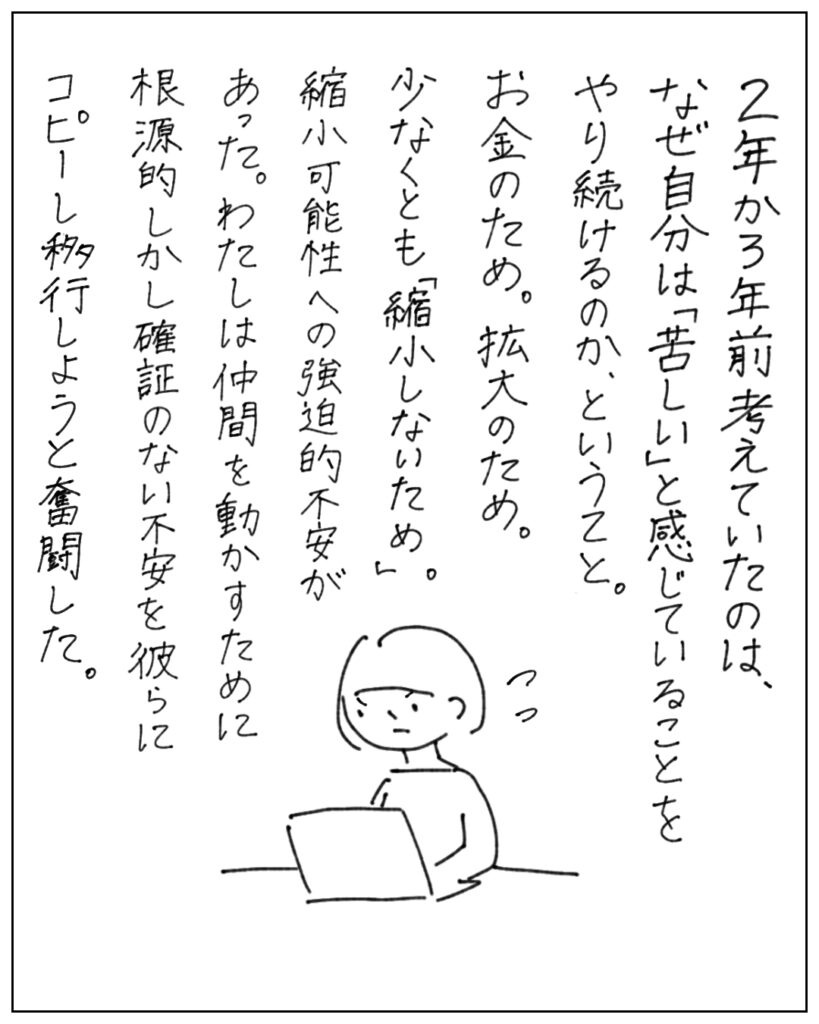 2年か3年前考えていたのは、
なぜ自分は「苦しい」と感じていることを
やり続けるのか、ということ。
お金のため。拡大のため。
少なくとも「縮小しないため」。
縮小可能性への強迫的不安が
あった。わたしは仲間を動かすために
根源的しかし確証のない不安を彼らに
コピーし移行しようと奮闘した。